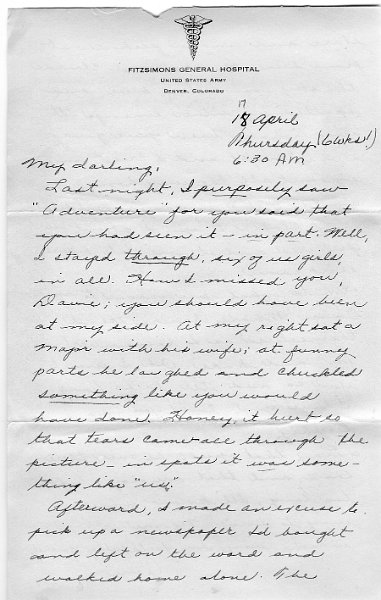 FITZSIMONS GENERAL HOSPITAL
UNITED STATES ARMY
DENVER, COLORADO
17
18 April
Thursday (6 wks!)
6:30 AM
My darling,
Last night, I purposely saw
"Adventure" for you said that
you had seen it – in part. Well,
I stayed through, six of us girls,
in all. How I missed you,
Davie; you should have been
at my side. At my right sat a
Major with his wife; at funny
parts he laughed and chuckled
something like you would
have done. Honey, it hurt so
that tears came all through the
picture – in spots it was some-
thing like "us".
Afterward, I made an excuse to
pick up a newspaper I'd bought
and left on the ward and
walked home alone. The